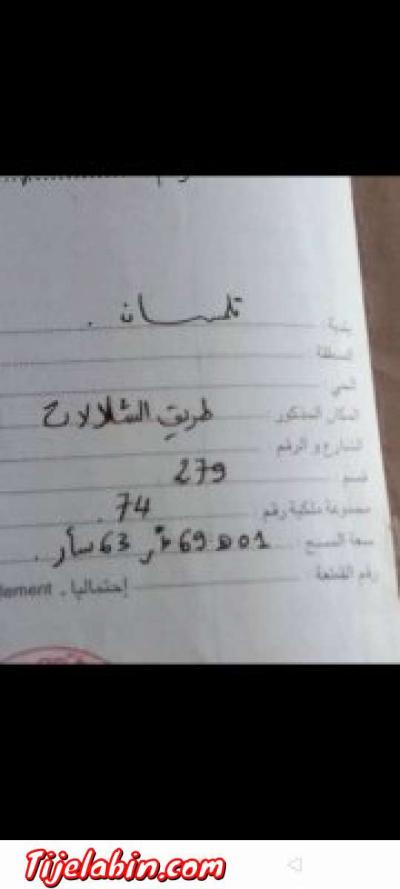 بلدية : تلمسان .
المنطقة :
الحي :
المكان المذكور : طريق الشلالات
الشارع و الرقم :
قسم : 279
مجموعة ملكية رقم : 74 .
سعة المسح : 01 ه 69 آر 63 سآر .
رقم القطعة : إحتماليا . lement
Tijelabin.com